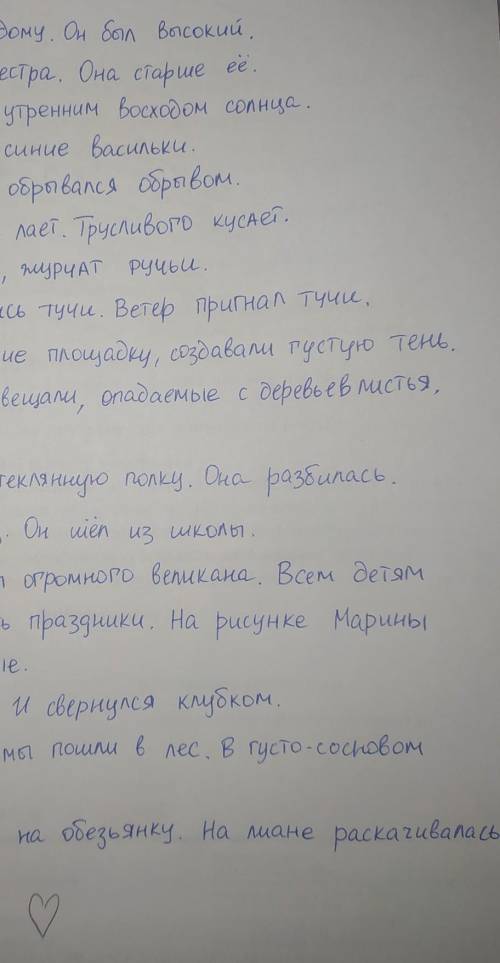 дому. Он был высокий.
естра. Она старше её.
утренним восходом солнца.
синие васильки.
обрывался обрывом.
лает. Трусливого кусает.
, журчат ручьи.
ись тучи. Ветер пригнал тучи.
ие площадку, создавали густую тень.
вещали, опадаемые с деревьев листья,
теклянную полку. Она разбилась.
. Он шёл из школы.
огромного великана. Всем детям
ь праздники. На рисунке Марины
ые.
И свернулся клубком.
мы пошли в лес. В густо-сосновом
на обезьянку. На лиане раскачивалась